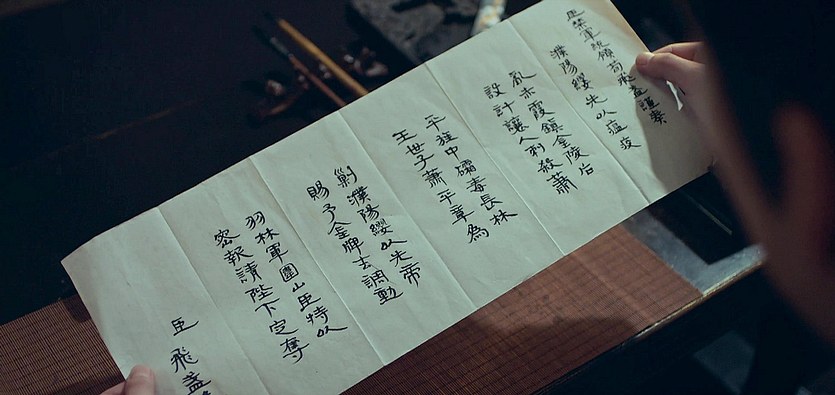 臣禁軍統領荀飛盞謹奏
濮陽纓先以瘟疫
亂赤霞鎮金陵后
設計讓人刺殺蕭
平旌中毒長林
王世子蕭平章為
剿濮陽纓以先帝
賜予金牌去調動
羽林軍圍山臣特以
密報請陛下定奪
臣 飛盞